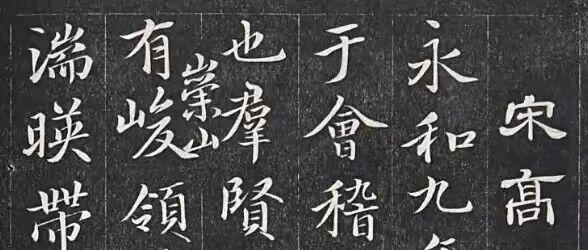 宋高
永和九年
于會稽
也羣賢
崇山
有峻領
湍暎帶